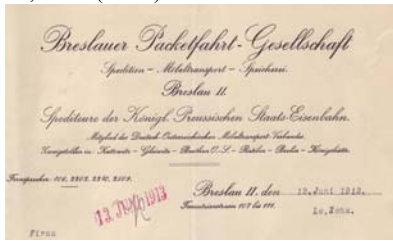 Breslauer Packetfahrt-Gesellschaft
Spedition – Möbeltransport – Speicherei.
Breslau II.
Spediteure der Königl. Preussischen Staats-Eisenbahn.
Mitglied des Deutsch. Österreichischen Möbeltransport Verbandes
Zweigstellen in: Kattowitz – Gleiwitz – Beuthen O.S. – Ratibor – Berlin – Königshütte.
Fernsprecher 106, 2202, 2210, 2509.
12. JUNI 1912
Breslau II, den 12. Juni 1912.
107 bis 111.
Firma